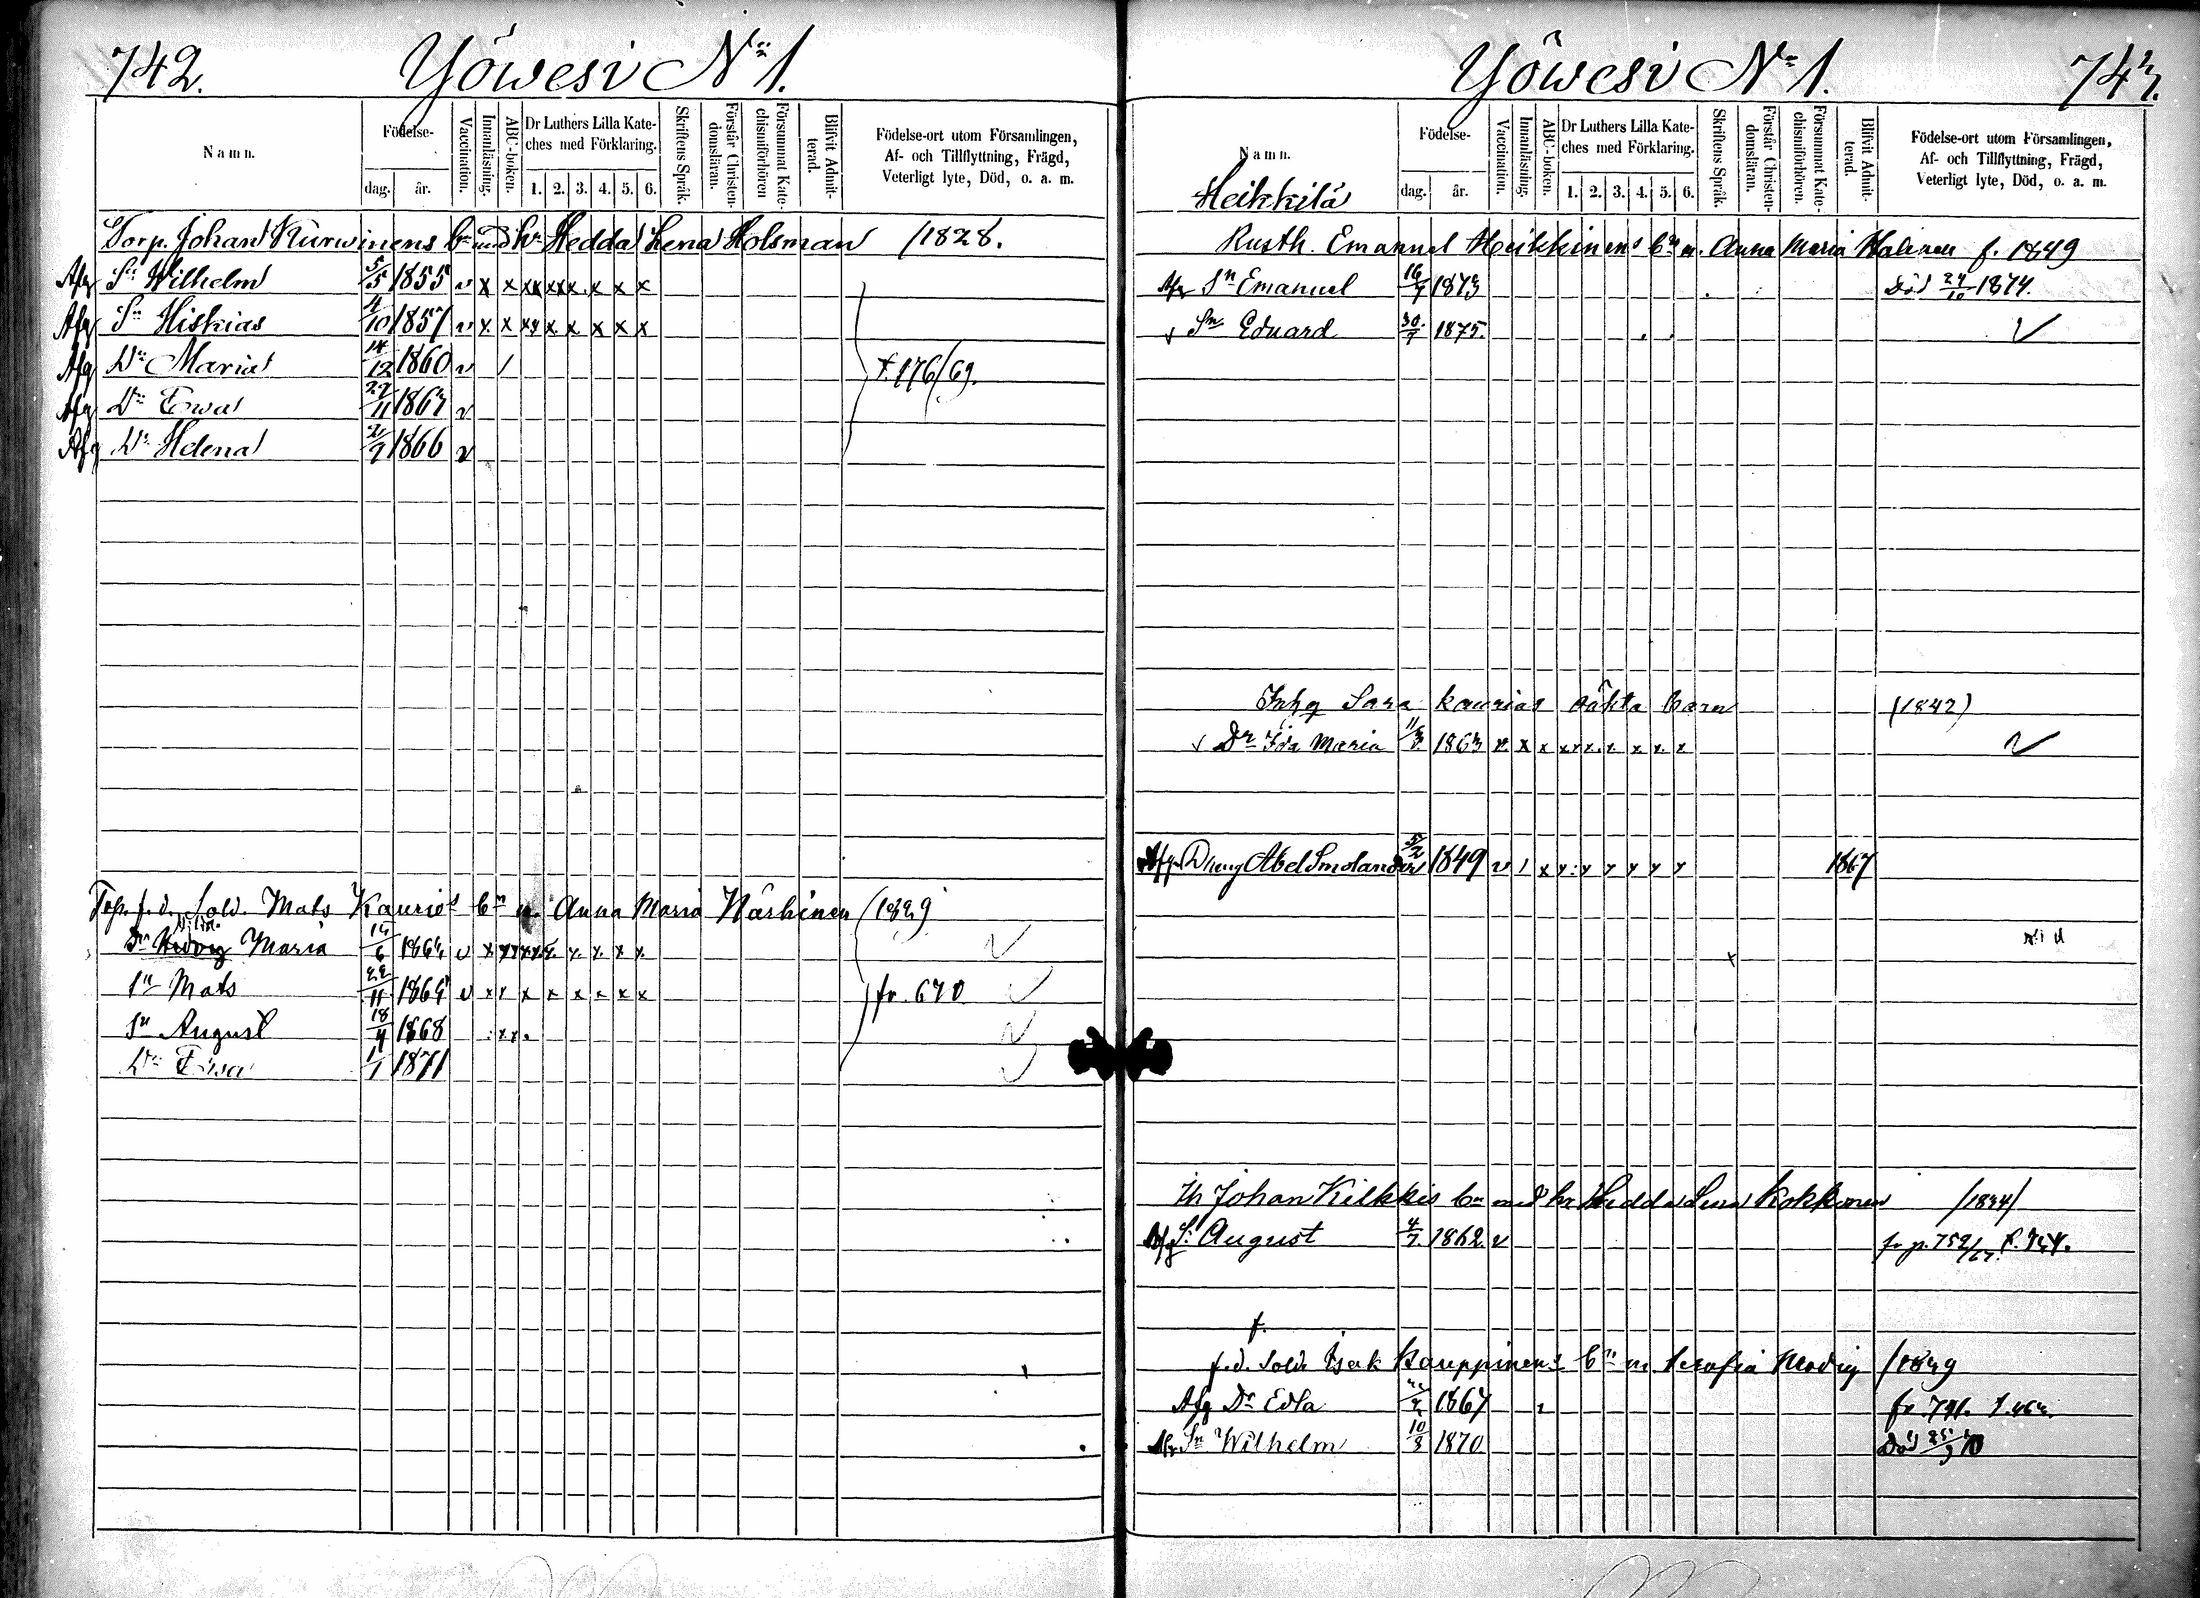 742. Yöwesi No 1.
Namn.
Födelse-
dag.
år.
Vaccination.
Innanläsning.
ABC-boken.
Dr Luthers Lilla Kate-
ches med Förklaring.
1. 2. 3. 4. 5. 6.
Skriftens Språk.
Förstår Christen-
domsläran.
Försummat Kate-
chismiförhören
Blifvit Admit-
terad.
Födelse-ort utom Församlingen,
Af- och Tillflyttning, Frägd,
Veterligt lyte, Död, o. a. m.
Torp. Johan Kurwinens bn med hu Hedda Lena Holsman /1828.
Afg Sn Wilhelm 5/5 1855 v x x xx xx x x x x
Afg Sn Hiskias 4/10 1857 v x x xx x x x x x
Afg Dr Maria 14/12 1860 v / f. 176/69.
Afg Dr Ewa 22/11 1863 v
Afg Dr Helena 2/9 1866 v
f. d. Sold. Mats Kauriās bn m. Anna Maria /1829
Dr Maria 6 v x
Sn Mats 22/11 v x x x x x x x x fr. 670
Sn August 18/9 1868 x x
Dr Ewa 1/1 1871
Yöwesi No 1. 743.
Namn.
Heikkilä
Födelse-
dag.
år.
Vaccination.
Innanläsning.
ABC-boken.
Dr Luthers Lilla Kate-
ches med Förklaring.
1. 2. 3. 4. 5. 6.
Skriftens Språk.
Förstår Christen-
domsläran.
Försummat Kate-
chismiförhören.
Blifvit Admit-
terad.
Födelse-ort utom Församlingen,
Af- och Tillflyttning, Frägd,
Veterligt lyte, Död, o. a. m.
Rusth. Emanuel Heikkinens bn m. Anna Maria Halinen f. 1849
Afg Sn Emanuel 16/7 1873 Död 24/10 1874.
Sn Eduard 30/9 1875.
Inhg Sara Kaurias oäkta barn (1842)
Dr Ida Maria 11/3 1863 v. x x x x x. x. x x. x
Afg Dreng Abel Smolander 5/2 1849 v / x y y y y y y 1867
Johan Kilkkis bn med hu Hedda Lena Kokkonen /1834/
Afg Sn August 4/7. 1862. v fr p. 752/67.
f.
f.d. Sold. Isak Kauppinens bn m Serafia Modig /1839
Afg Dr Edla 1867 fr 741.
Afg Sn Wilhelm 10/8 1870 Död 25/9 70